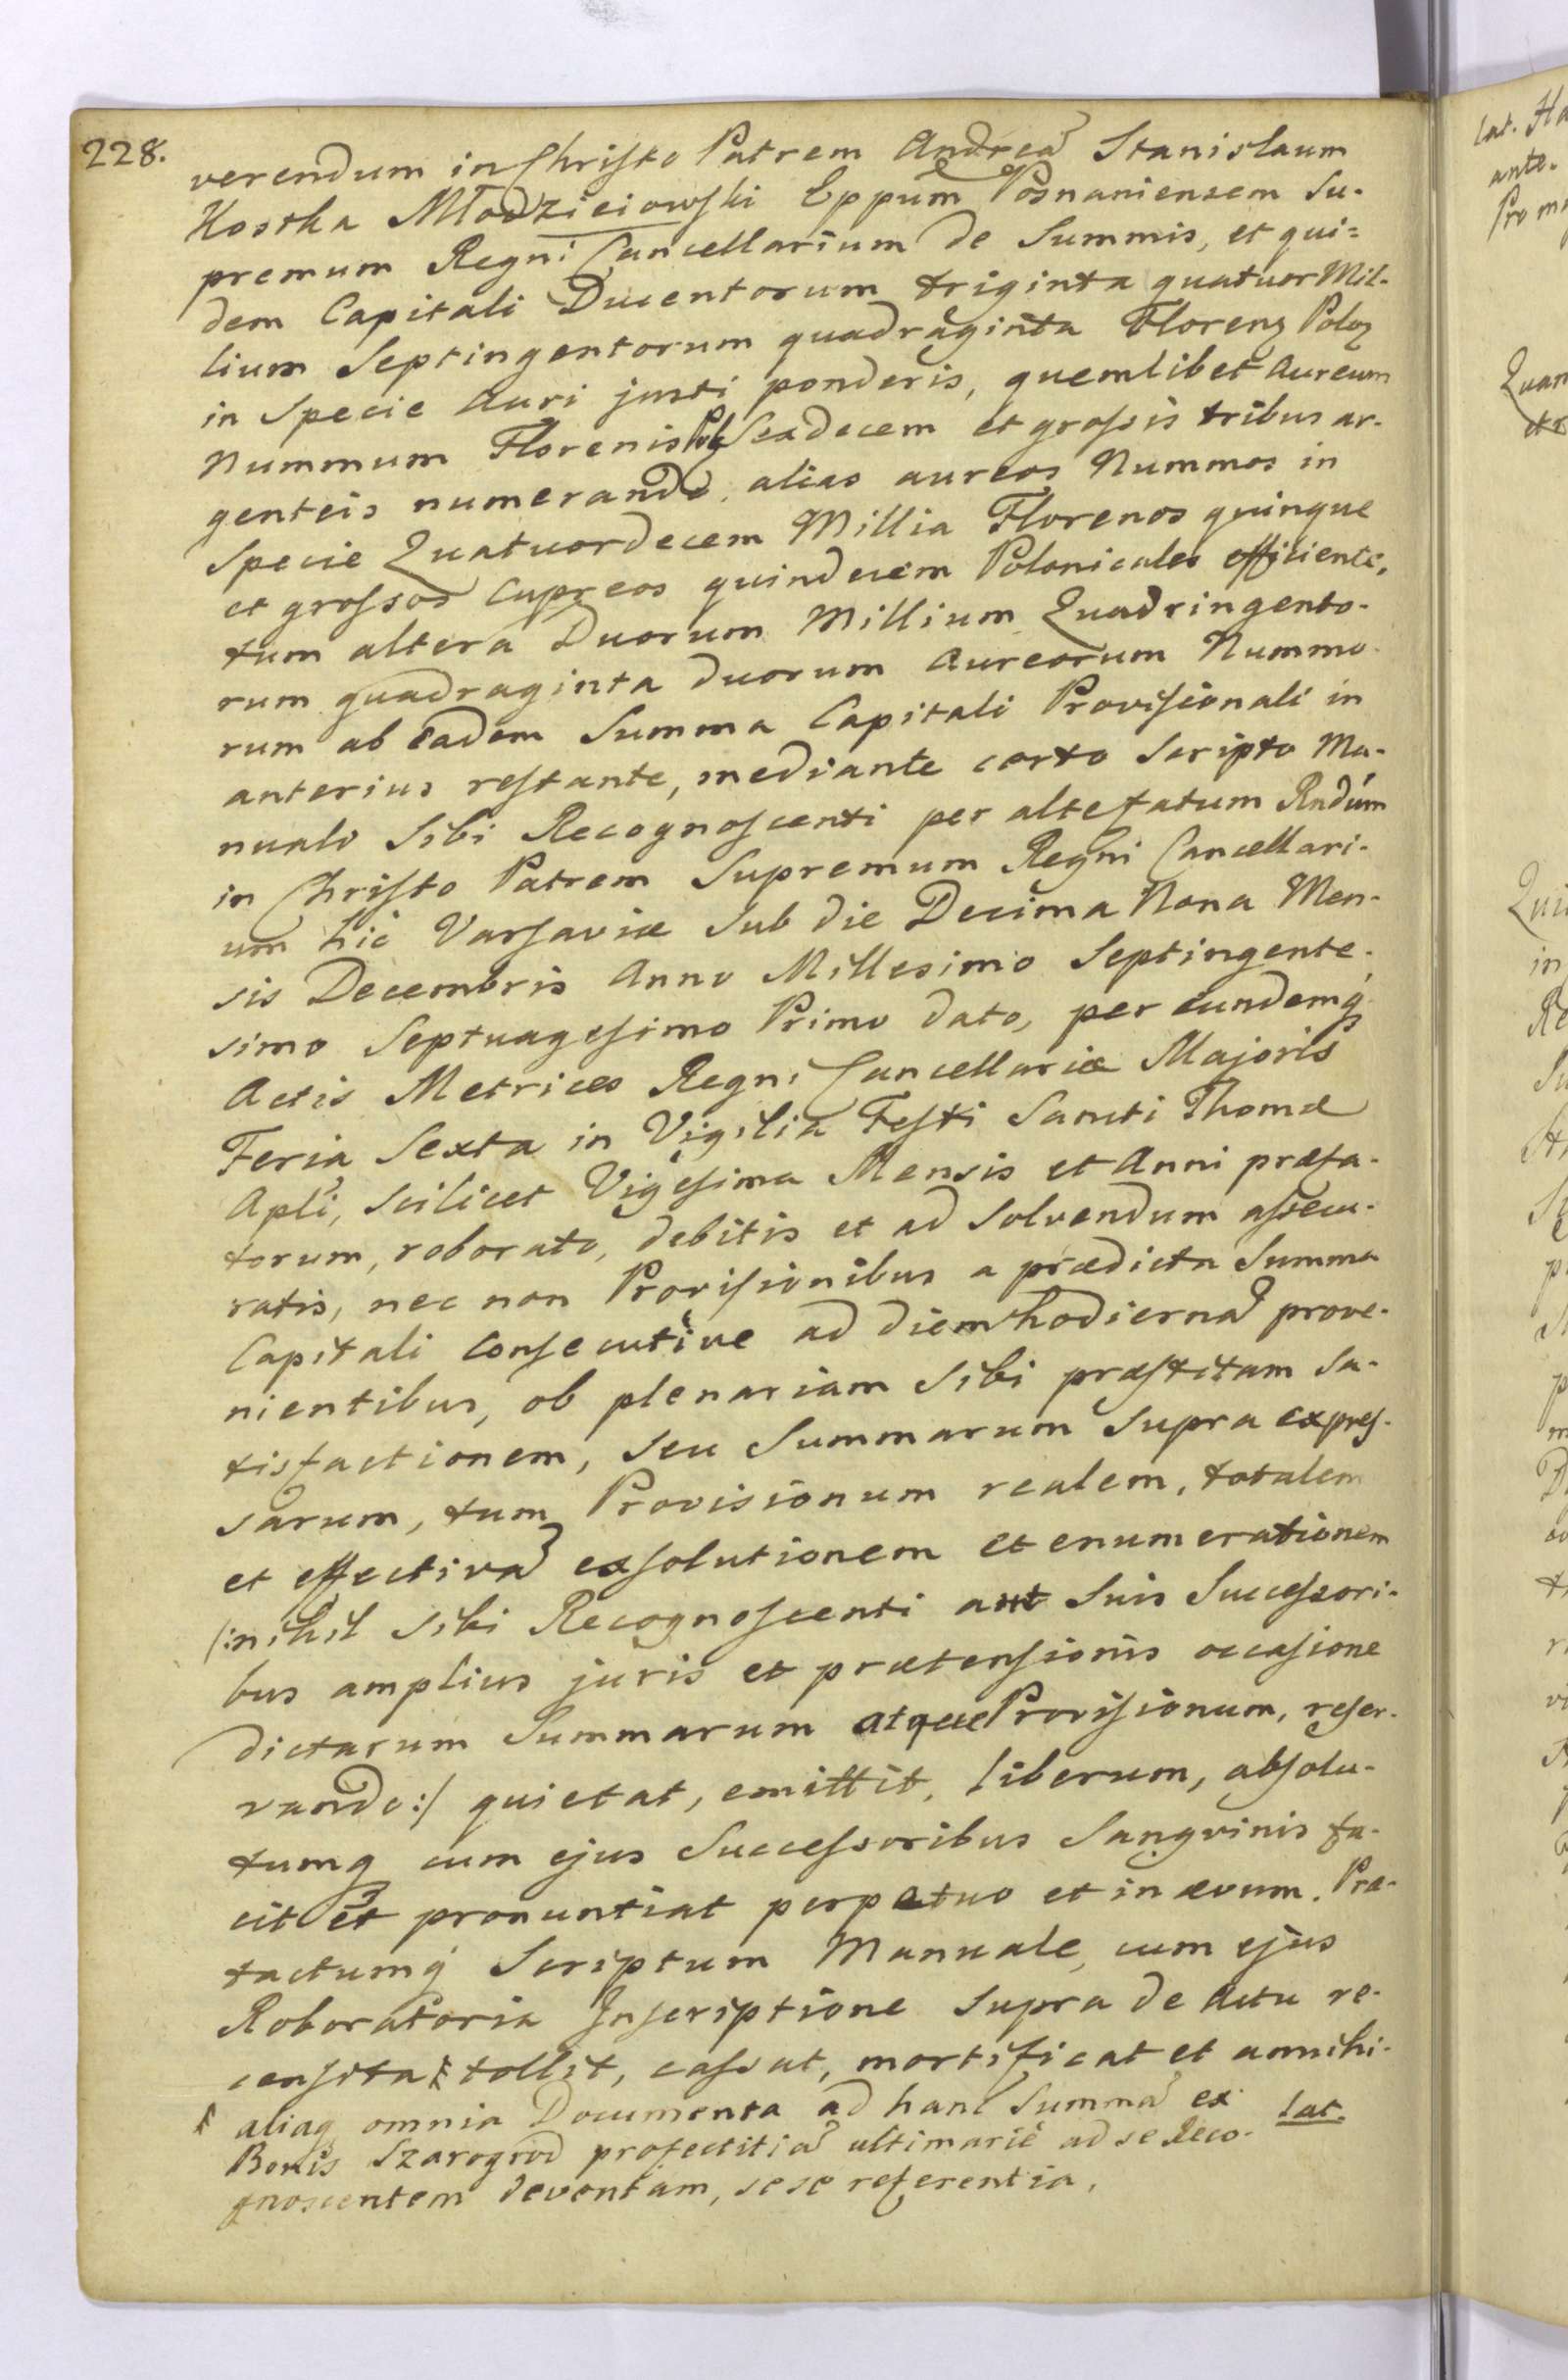 228.
verendum in Christo Patrem Andreã Stanislaum
Kostka Młodzieiowski Eppum Posnaniensem Su-
premum Regni Cancellarium de Summis, et qui=
dem Capitali Ducentorum triginta quatuor Mil-
lium Septingentorum quadraginta Florenz Poloz
in Specie Auri justi ponderis, quemlibet Aureum
Nummum Florenis Pol Sexdecem et grossis tribus ar-
genteis numerando, alias aureos Nummos in
Specie Quatuordecem Millia Florenos quinque
et grossos cupreos quindecem Polonicales efficiente,
tum altera Duorum Millium Quadringento-
rum quadraginta duorum Aureorum Nummo-
rum ab eadem Summa Capitali Provisionali in
anterius restante, mediante certo Scripto Ma-
nuali Sibi Recognoscenti per altefatum Rndum
in Christo Patrem Supremum Regni Cancellari-
um hic Varsaviæ Sub die Decima Nona Men-
sis Decembris Anno Millesimo Septingente-
simo Septuagesimo Primo dato, per eundemq
Actis Metrices Regni Cancellariæ Majoris
Feria Sexta in Vigilia Festi Sancti Thomæ
Apli, scilicet Vigesima Mensis et Anni præfa-
torum, roborato, debitis et ad Solvendum assecu-
ratis, nec non Provisionibus a prædicta Summa
Capitali Consecutive ad diem hodiernã prove-
nientibus, ob plenariam Sibi præstitam Sa-
tisfactionem, seu Summarum Supra expres-
sarum, tum Provisionum realem, totalem
et effectivã exsolutionem et enumerationem
/:nihil Sibi Recognoscenti aut Suis Successori-
bus amplius juris et prætensionis occasione
dictarum Summarum atque Provisionum, reser-
vando:/ quietat, emittit, liberum, absolu-
tumq cum ejus Successoribus Sangvinis fa-
cit et pronuntiat perpetuo et in ævum. Præ-
tactumq Scriptum Manuale, cum ejus
Roboratoria Inscriptione Supra de Actu re-
censita tollit, cassat, mortificat et annihi-
lat.
aliaq omnia Documenta ad hanc Summã ex
Bonis Szarogrod profectitiã ultimarie ad se Reco-
gnoscentem deventam, sese referentia,